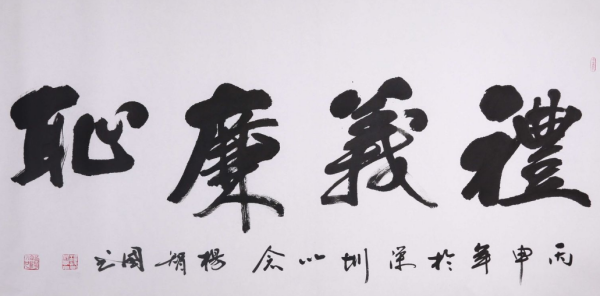 禮義廉恥
丙申年於深圳以念楊朝國書